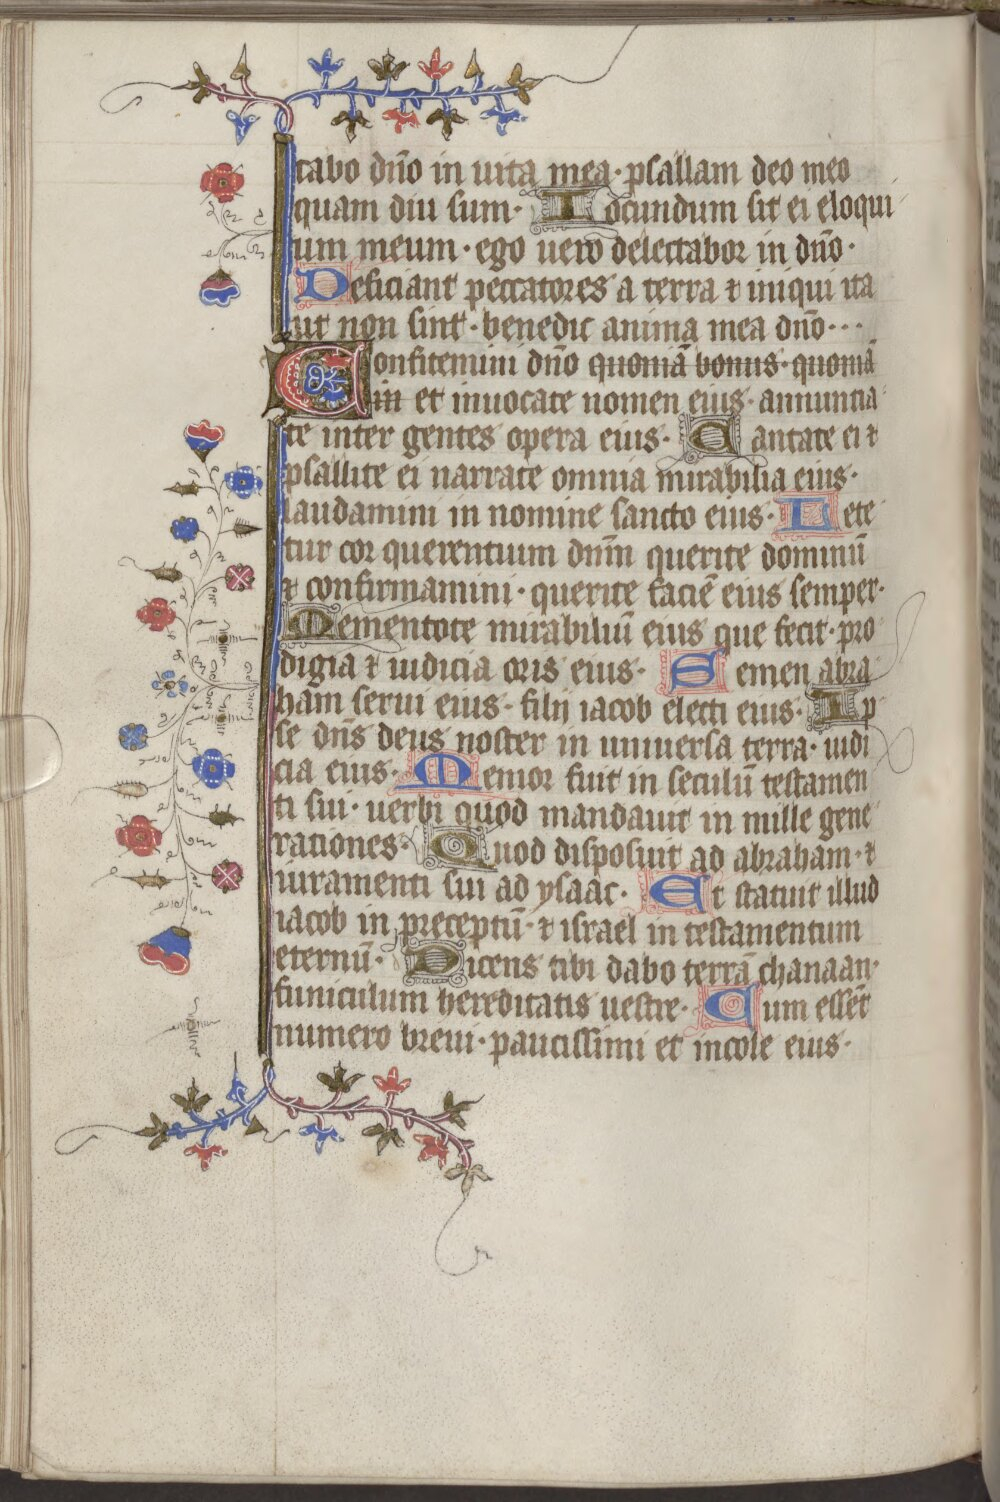 tabo dn̄o in uita mea · psallam deo meo
quam diu sum · Iocundum sit ei eloqui
um meum · ego uero delectabor in dn̄o ·
Deficiant peccatores a terra ⁊ iniqui ita
ut non sint · benedic anima mea dn̄o · · ·
Confitemini dn̄o quoniā bonus · quoniā
in et inuocate nomen eius · annuntia
te inter gentes opera eius · Cantate ei ⁊
psallite ei narrate omnia mirabilia eius ·
laudamini in nomine sancto eius · Lete
tur cor querentium dn̄m querite dominū
⁊ confirmamini · querite faciē eius semper ·
Mementote mirabiliū eius que fecit · pro
digia ⁊ iudicia oris eius · Semen abra
ham serui eius · filij iacob electi eius · Ip
se dn̄s deus noster in uniuersa terra · iudi
cia eius · Memor fuit in seculū testamen
ti sui · uerbi quod mandauit in mille gene
rationes · Quod disposuit ad abraham · ⁊
iuramenti sui ad ysaac · Et statuit illud
iacob in preceptū · ⁊ israel in testamentum
eternū · Dicens tibi dabo terrā chanaan ·
funiculum hereditatis uestre · Cum essēt
numero breui · paucissimi et incole eius ·